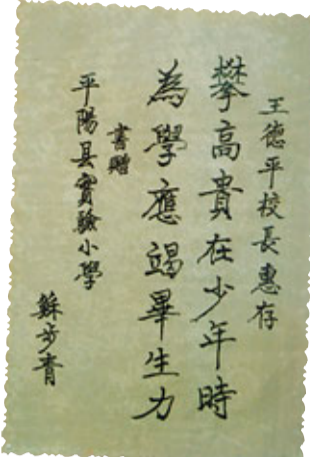 王德平校長惠存
攀高貴在少年時
為學應竭畢生力
書贈
平陽县實驗小學
蘇步青